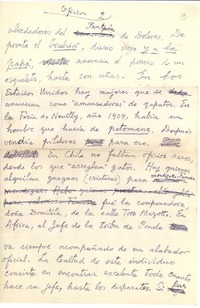 Oficios 2
alrededores del Panteón de Dolores. De
pronto el Excélsior, diario viejo y a la
papá, anuncia el precio de un
esqueleto, hasta con uñas. En los
Estados Unidos hay mujeres que se
anuncian como "amansadoras" de zapatos. En
la Foire de Neuilly, año 1924, había un
hombre que hacía de petomane. Después
vendía píldoras para eso.
En Chile no faltan oficios raros,
desde los que "arreglan" gatos. Hay quienes
alquilan guaguas (criaturas) para
fue la componedora,
doña Domitila, de la calle Toro Mazotte. En
Africa, al Jefe de la tribu de Pondo
va siempre acompañado de un alabador
oficial. La lealtad de este individuo
consiste en encontrar excelente todo cuanto
hace su jefe, hasta los disparates. Si